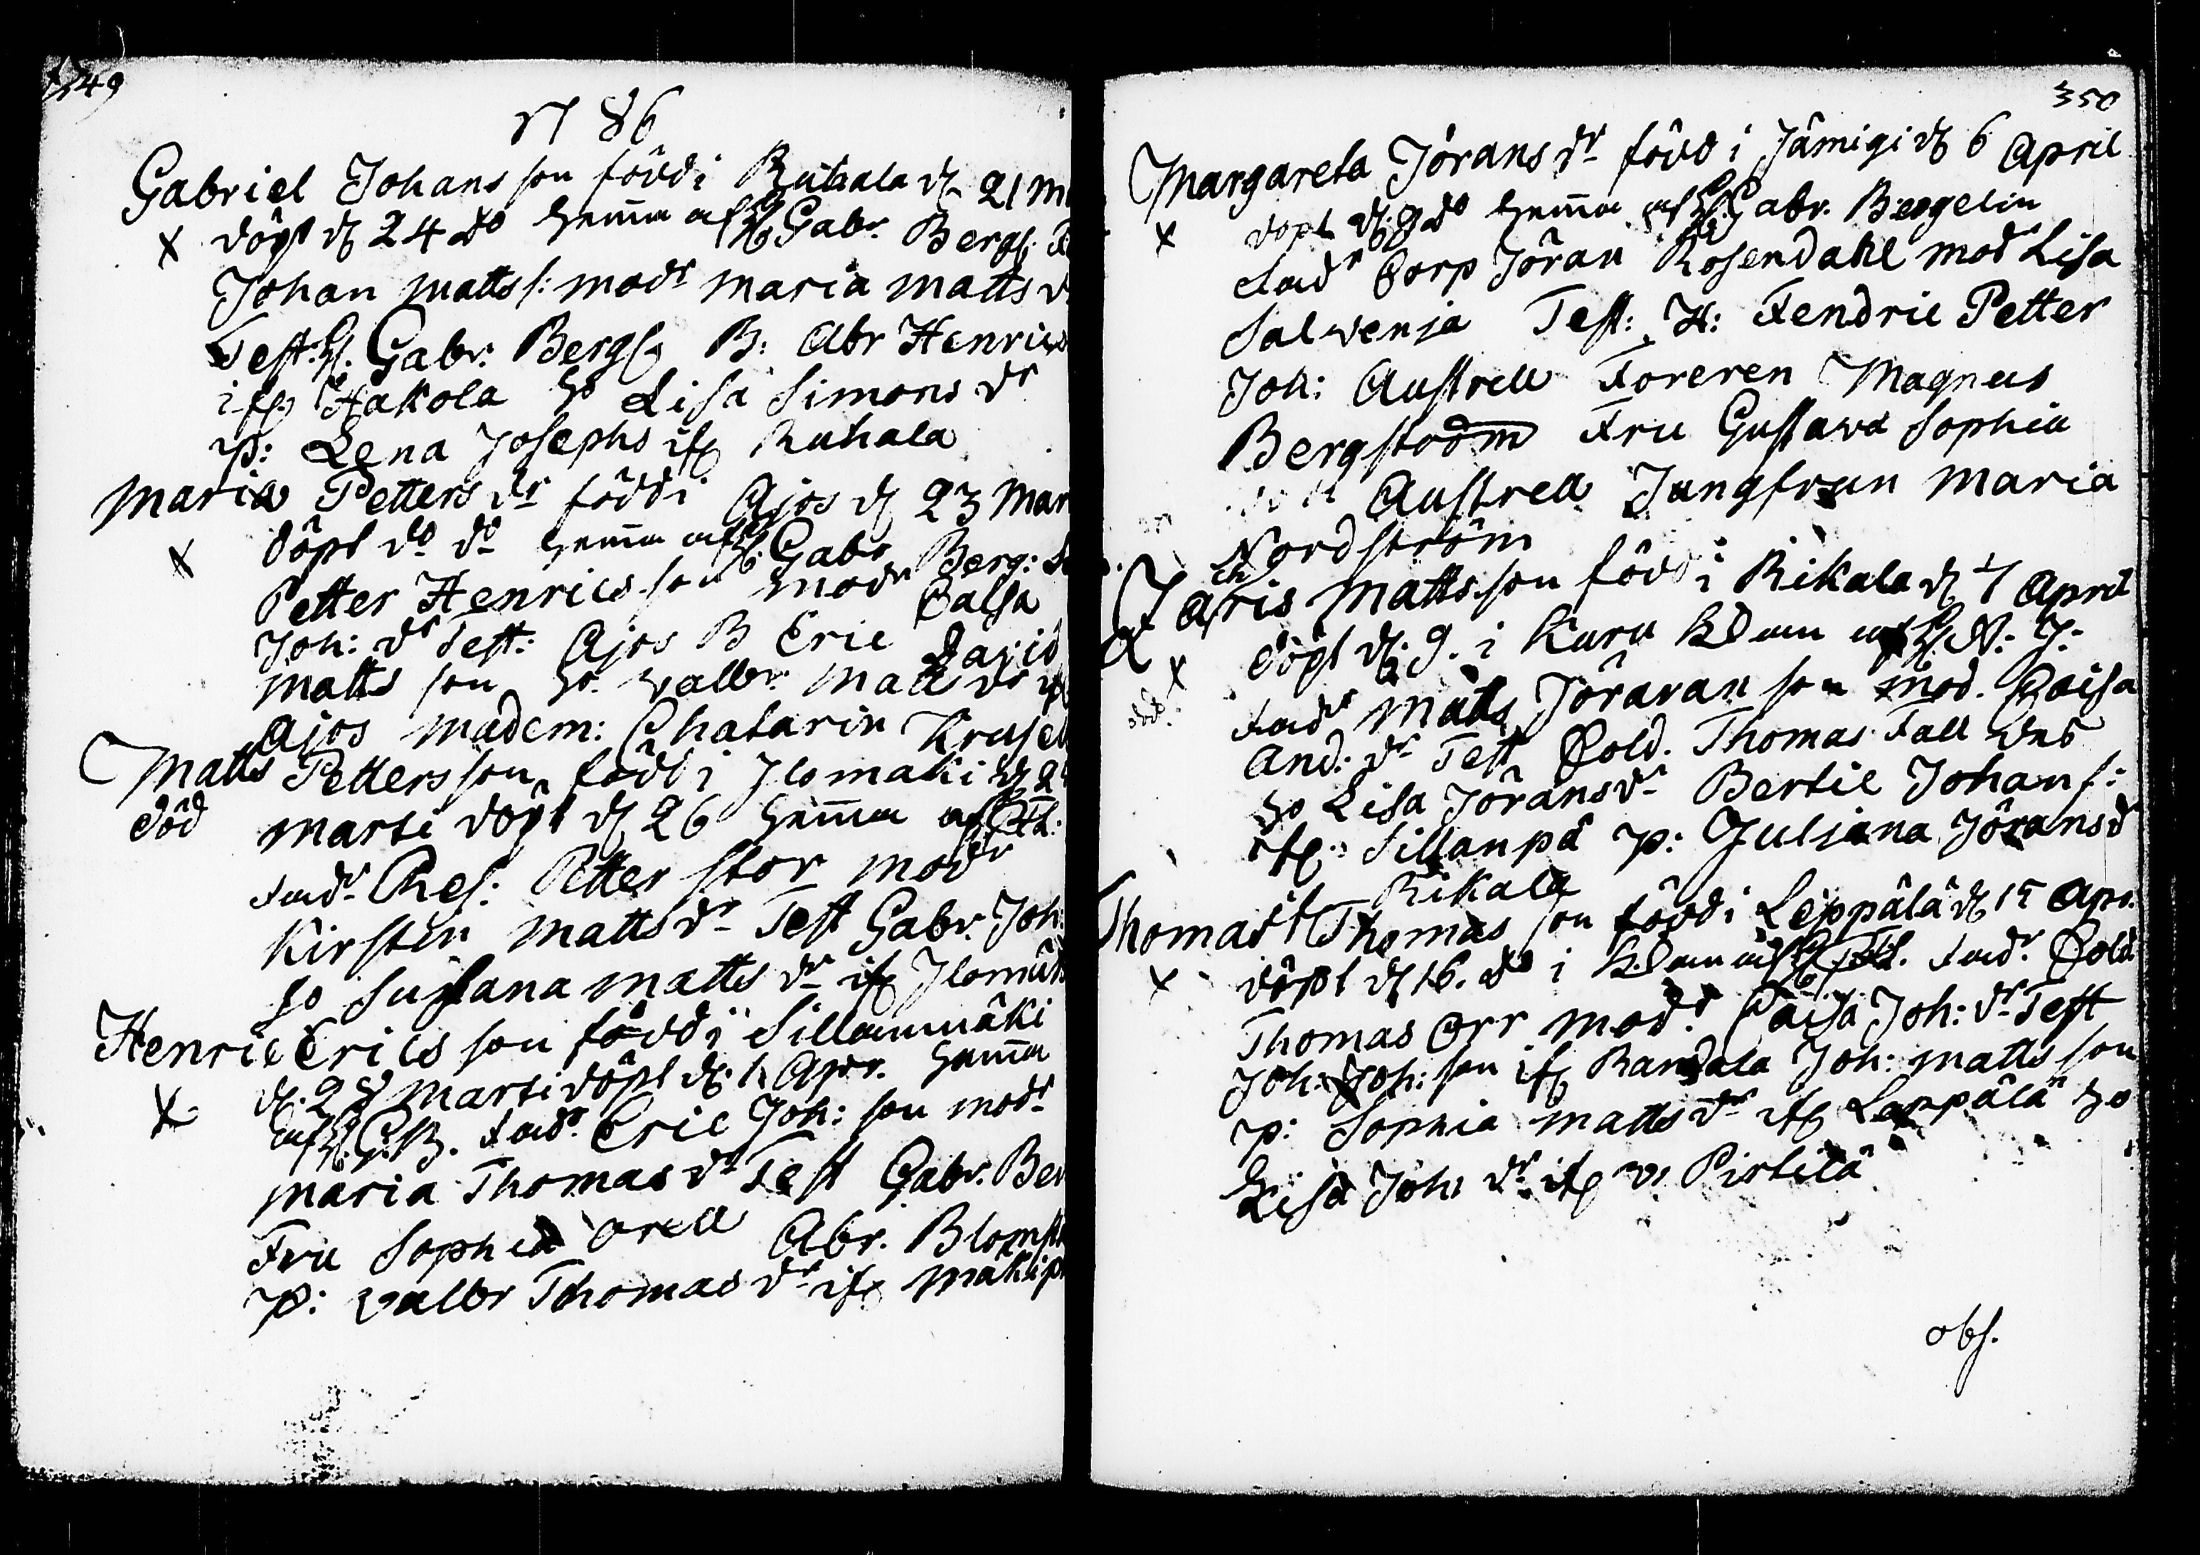 349
1786
Gabriel Johansson född i Ruhala d 21 M
x döpt d 24 do hemma af H Gabr. Bergl. F
Johan Matts s: modr Maria Matts d
Test: H. Gabr. Bergl. B: Abr Henrics
ifr Hakola ho Lisa Simons dr
p: Lena Josephs ifr Ruhala
Maria Petters dr född i Ajos d 23 Mar
x döpt do do hemma af H. Gabr Berg:
Petter Henrics son modr Caisa
Joh: dr Test: Ajos B Eric David
Matts son ho. Valbr. Matts dr ifr
Ajos Madem: Chatarin Krusel
Matts Pettersson född i Ilomäki d 2
död Marti döpt d 26 hemma af
Fadr. Res: Petter Stor modr
Kirstin Matts dr Test Gabr. Joh
ho Susana Matts dr ifr Ilomäk
Henric Erics son född i Sillanmäki
d. 28 Marti döpt d. 1 Apr. hemma
x af H. G. B. Fadr. Eric Joh: son modr
Maria Thomas dr Test Gabr. Ber
Fru Sophia Orell Abr. Blomst
p: Valbr Thomas dr ifr Mäkip
350
Margareta Jörans dr född i Jämigi d 6 April
x döpt d. 9 do hemma af H. Gabr. Bergelin
Fadr Corp Jöran Rosendahl mod Lisa
Salvenia Test: H: Fendric Petter
Joh: Austrell Foreren Magnus
Bergstodm Fru Gustava Sophia
Austrell Jungfrun Maria
Nordström
Zachris Mattsson född i Rikala d 7 April
x döpt d. 9. i Kuru af H. N. J.
död. Fadr Matts Jöravan son mod. Caisa
And: dr Test Sold. Thomas Fall Dess
ho Lisa Jörans dr Bertil Johan s:
ifr Sillanpä p: Juliana Jörans d
Rikala
Thomas Thomas son född i Leppälä d 15 Apr.
x döpt d 16. do i af H. Fadr. Sold
Thomas Orr modr Caisa Joh: dr Test
Joh: Joh: son ifr Randala Joh: Matts son
p: Sophia Matts dr ifr Leppälä ho
Lisa Joh: dr ifr v: Pirtilä
obs.